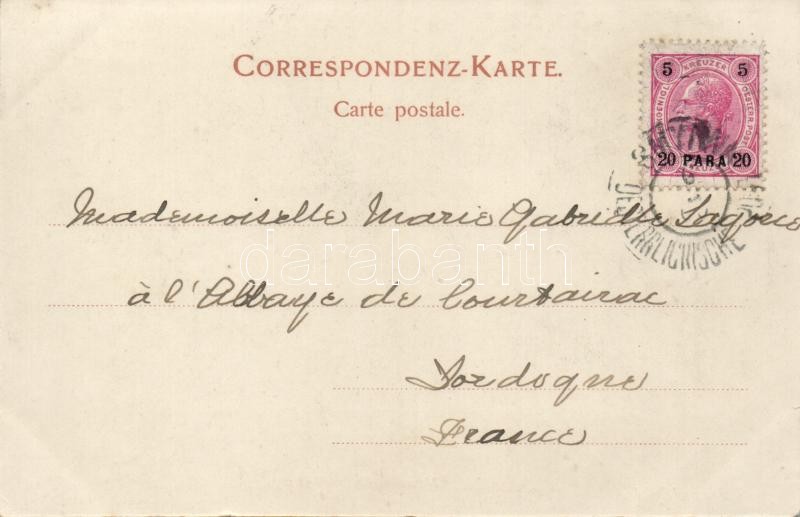 CORRESPONDENZ-KARTE.
Carte postale.
5 KREUZER 5
20 PARA 20
OESTERREICHISCHE
Mademoiselle Marie Gabrielle
darabanth
à l'Abbaye de
Dordogne
France